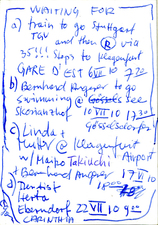 WAITING FOR
a) train to go Stuttgart
TGV
and then (R) via
35!!! stops to Klagenfurt
GARE D'EST 6 VII 10 7
b) Bernhard Angerer to go
swimming @ see
10 VII 10 17 30
Gösselsdorfer
c) Linda +
@ Klagenfurt
w/ Marko Takiuchi Airport
+ Bernhard Angerer 17 VII 10
18 00
d) Dentist
Herta
Eberndorf 22 VII 10 9 00
CARINTHIA